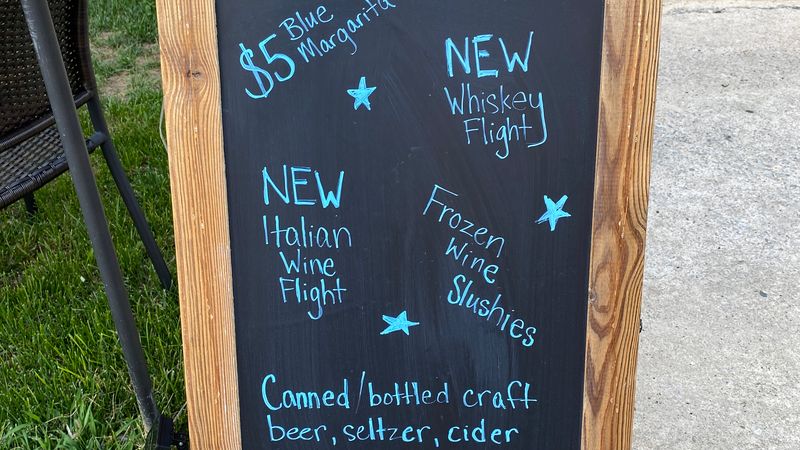 $5 Blue
Margarita
NEW
Whiskey
Flight
NEW
Italian
Wine
Flight
Frozen
Wine
Slushies
Canned/bottled craft
beer, seltzer, cider